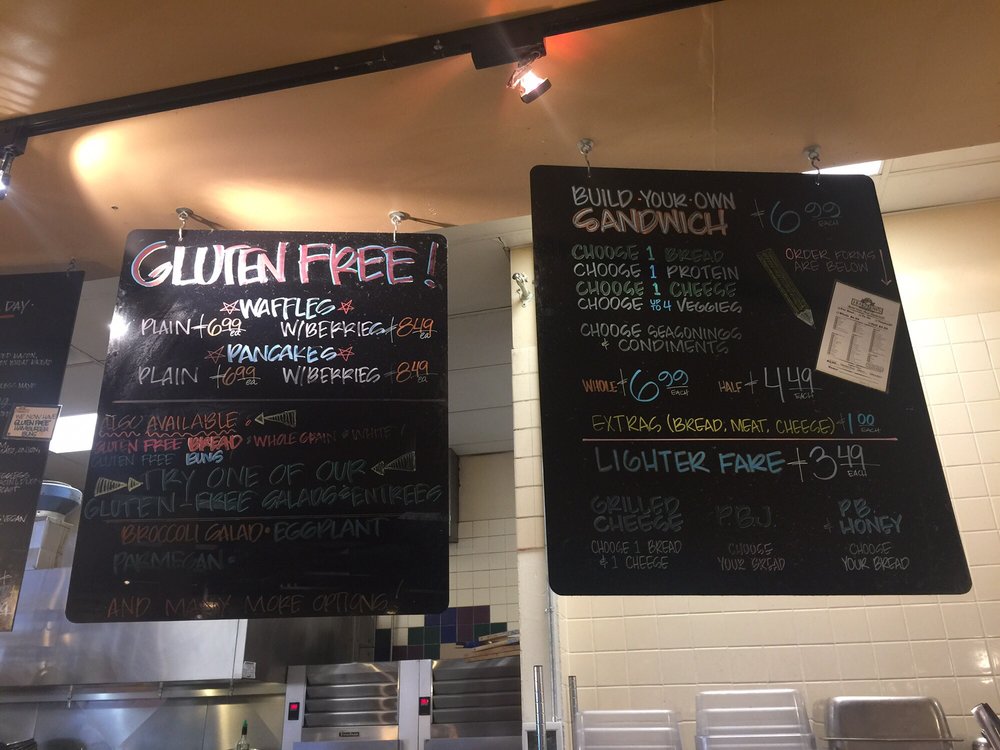 DAY
WE NOW HAVE
GLUTEN FREE
HAMBURGER
BUNS
VEGAN
GLUTEN FREE!
WAFFLES
PLAIN 6.99 ea W/BERRIES 8.49 ea
PANCAKES
PLAIN 6.99 ea W/BERRIES 8.49 ea
ALSO AVAILABLE
GLUTEN FREE BREAD • WHOLE GRAIN • WHITE
GLUTEN FREE BUNS
TRY ONE OF OUR
GLUTEN-FREE SALADS & ENTREES
BROCCOLI SALAD • EGGPLANT
PARMESAN •
AND MANY MORE OPTIONS!
BUILD·YOUR·OWN
SANDWICH 6.99 EACH
CHOOSE 1 BREAD
CHOOSE 1 PROTEIN
CHOOSE 1 CHEESE
CHOOSE UP TO 4 VEGGIES
CHOOSE SEASONINGS
& CONDIMENTS
ORDER FORMS
ARE BELOW
WHOLE 6.99 EACH HALF 4.49 EACH
EXTRAS (BREAD, MEAT, CHEESE) 1.00 EACH
LIGHTER FARE 3.49 EACH
GRILLED
CHEESE
CHOOSE 1 BREAD
& 1 CHEESE
P.B.J.
CHOOSE
YOUR BREAD
P.B.
& HONEY
CHOOSE
YOUR BREAD